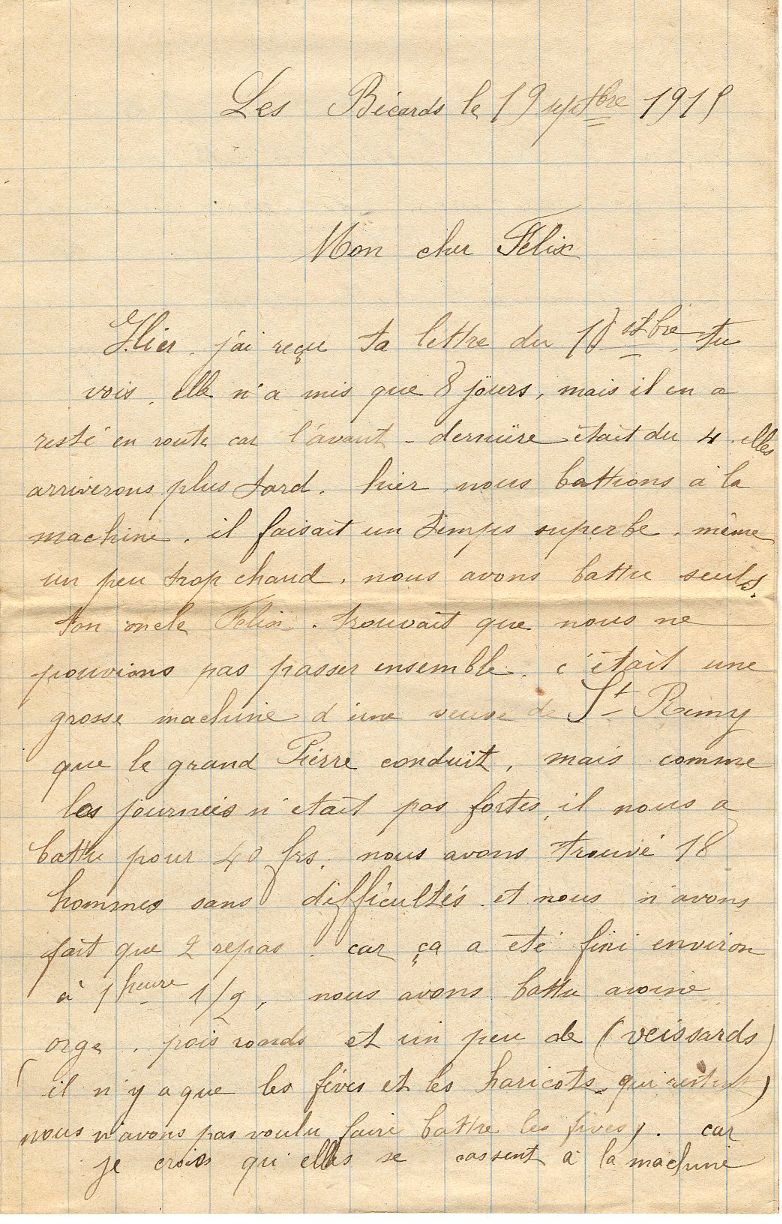 Les Bicards le 19 septbre 1915
Mon cher Félix
Hier j'ai reçu ta lettre du 10 7bre tu
vois, elle n'a mis que 8 jours, mais il en a
resté en route car l'avant-dernière était du 4. elles
arriverons plus tard. hier nous battions à la
machine, il faisait un temps superbe, même
un peu trop chaud, nous avons battu seuls.
ton oncle Félix. trouvait que nous ne
pouvions pas passer ensemble. c'était une
grosse machine d'une veuve de St Remy
que le grand Pierre conduit, mais comme
les journées n'était pas fortes, il nous a
battu pour 40 frs. nous avons trouvé 18
hommes sans difficultés et nous n'avons
fait que 2 repas. car ça a été fini environ
à 1 heure 1/2, nous avons battu avoine
orge, pois ronds et un peu de (veissards)
(il n'y a que les fèves et les haricots qui restent)
nous n'avons pas voulu faire battre les fèves). car
je crois qu'elles se cassent à la machine